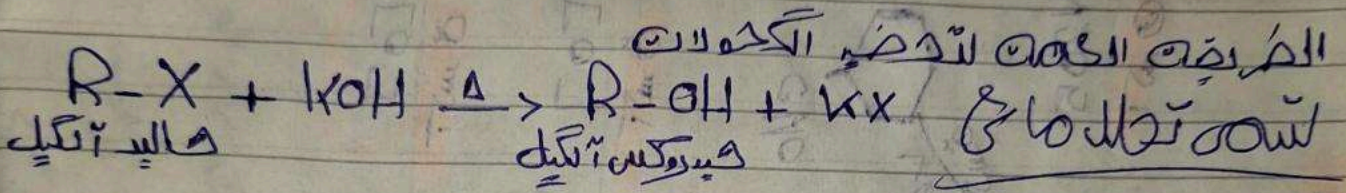 الطريقة العامة لتحضير الكحولات
R-X + KOH Δ→ R-OH + KX تسمى تحلل مائي
هاليد آلكيل هيدروكسيد آلكيل